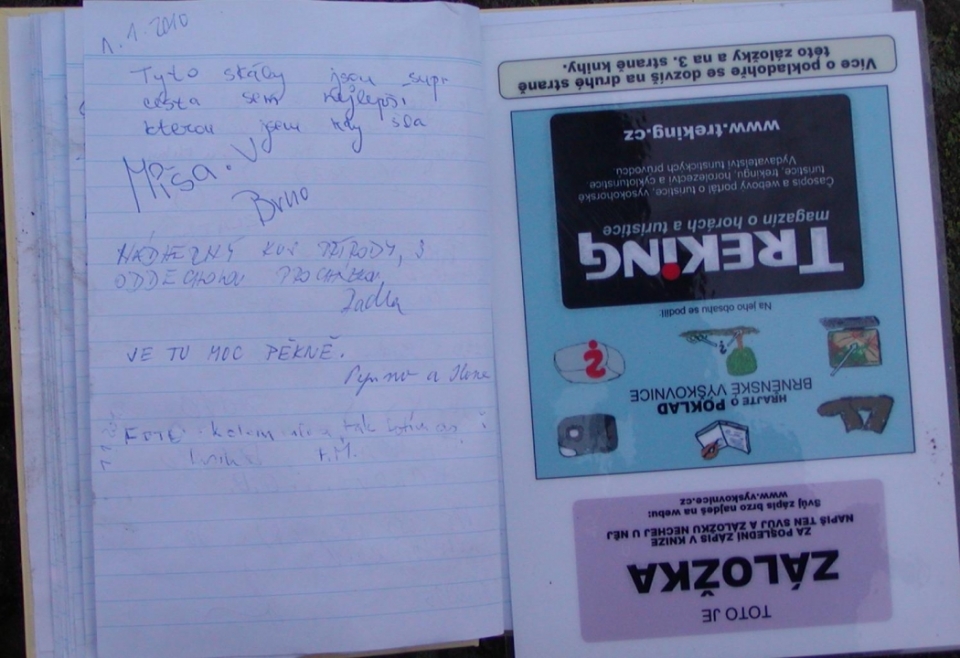 1. 1. 2010
Tyto skály jsou supr
cesta sem nejlepší
kterou jsem kdy šla
Míša. V
Brno
NÁDHERNÝ KUS PŘÍRODY, S
ODDECHOVOU PROCHÁZKOU
JE TU MOC PĚKNĚ.
a
tak
TOTO JE
ZÁLOŽKA
ZA POSLEDNÍ ZÁPIS V KNIZE
NAPIŠ TEN SVŮJ A ZÁLOŽKU NECHEJ U NĚJ
Svůj zápis brzo najdeš na webu:
www.vyskovnice.cz
HRAJTE O POKLAD
BRNĚNSKÉ VÝŠKOVNICE
Na jeho obsahu se podílí:
TREKiNG
magazín o horách a turistice
Časopis a webový portál o turistice, vysokohorské
turistice, trekingu, horolezectví a cykloturistice
Vydavatelství turistických průvodců
www.treking.cz
Více o pokladohře se dozvíš na druhé straně
této záložky a na 3. straně knihy.